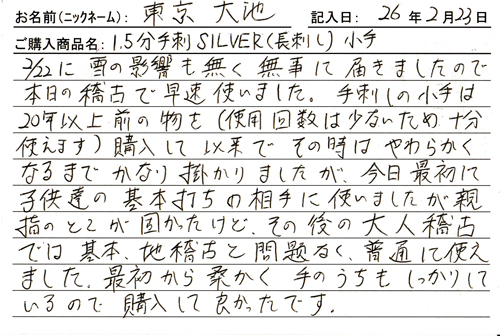 お名前(ニックネーム): 東京 大池 記入日: 26年2月23日
ご購入商品名: 1.5分手刺SILVER(長刺し) 小手
2/22に 雪の影響も無く 無事に 届きましたので
本日の稽古で早速使いました。手刺しの小手は
20年以上前の物を(使用回数は少ないため十分
使えます)購入して以来で その時は やわらかく
なるまで かなり 掛かりましたが、今日最初に
子供達の 基本打ちの相手に使いましたが親
指のとこが固かったけど、その後の大人稽古
では 基本、地稽古と問題なく、普通に使え
ました。最初から柔かく 手のうちも しっかりして
いるので 購入して良かったです。